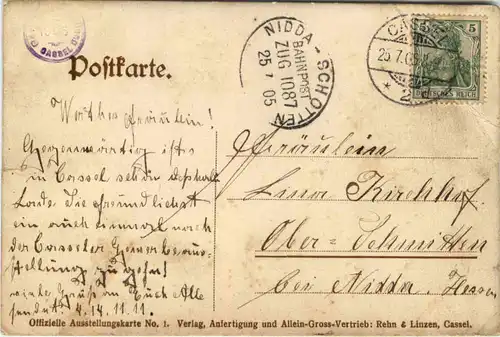 CASSEL
Postkarte.
NIDDA - SCHOTTEN
BAHNPOST
ZUG 1087
25 7 05
CASSEL
25.7.05
* 2
5
DEUTSCHES REICH
Wertes Fräulein!
Gegenwärtig ist's
in Cassel sehr
Lade Sie freundlichst
ein auch einmal nach
der Casseler Gewerbeaus-
stellung zu gehn!
viele Grüße an Euch Alle
sendet 4. 14. 11. 11.
Fräulein
Lina Kirchhof
Ober-Schmitten
bei Nidda. Hessen
Offizielle Ausstellungskarte No. 1. Verlag, Anfertigung und Allein-Gross-Vertrieb: Rehn & Linzen, Cassel.